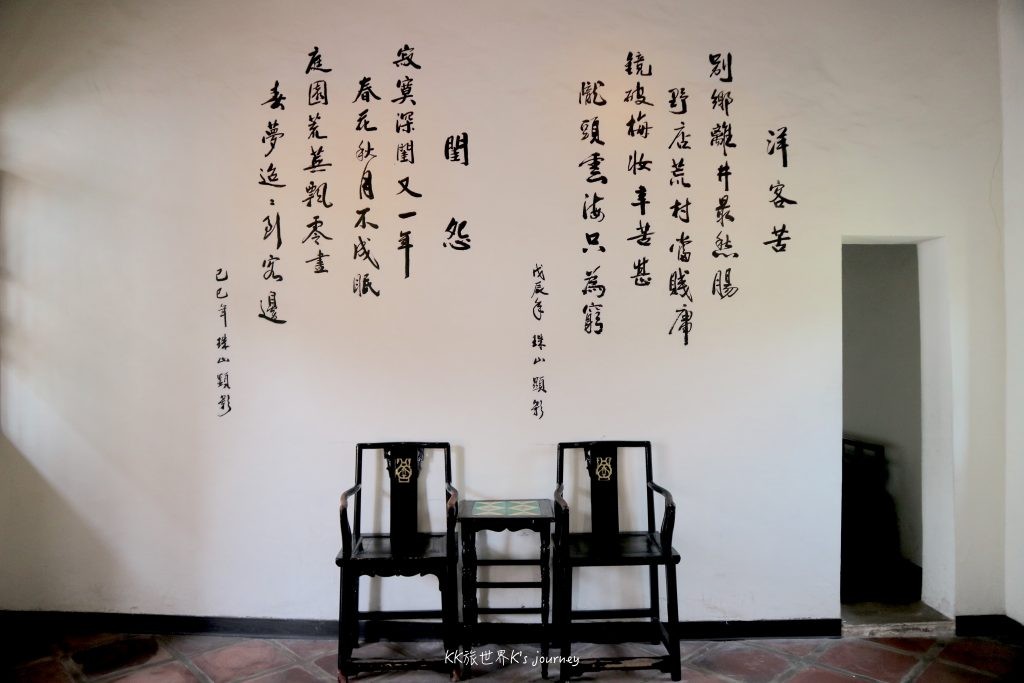 洋客苦
別鄉離井最愁腸
野店荒村當賤庸
鏡破梅妝辛苦甚
隴頭雲海只為窮
戊辰年 珠山顯影
閨怨
寂寞深閨又一年
春花秋月不成眠
庭園荒蕪飄零盡
春夢迢迢到客邊
己巳年 珠山顯影
KK旅世界K's journey